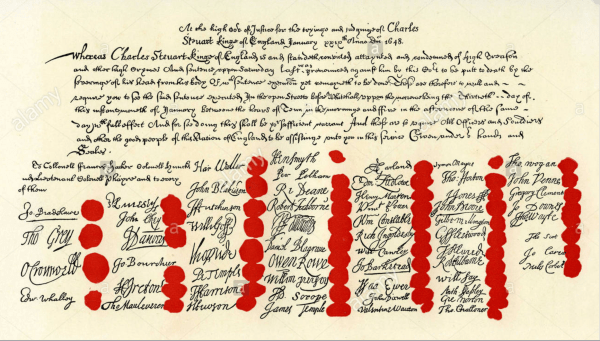 At the high Co^t of Justice for the tryinge and iudginge of Charles
Steuart kinge of England January xxix^th Anno Dñi 1648.
Whereas Charles Steuart kinge of England is and standeth convicted attaynted and condemned of high Treason
and other high Crymes And sentence uppon Saturday last was pronounced against him by this Co^t to be putt to death by the
severinge of his head from his body Of w^ch sentence execucon yet remayneth to be done These are therefore to will and
require you to see the said sentence executed In the open Streete before Whitehall uppon the morrowe being the Thirtieth day of
this instante moneth of January betweene the houres of Tenn in the morninge and Five in the afternoone of the same
day w^th full effect And for soe doing this shall be yo^r sufficient warrant And these are to require All Officers and Souldiers
and other the good people of this Nation of England to be assistinge unto you in this service Given under o^r hands and
Seales
To Collonell Francis Hacker Colonell Huncks
and Lieutenant Colonell Phayre and to every
of them
Jo Bradshawe
Tho Grey
O Cromwell
Edw Whalley
M Livesey
John Okey
J Danvers
Jo Bourchier
H Ireton
Tho Mauleverer
Har Waller
John Blakiston
J Hutchinson
Willi Goff
T Pride
P Temple
T Harrison
J Hewson
Hen Smyth
Per Pelham
Ri Deane
Robert Tichborne
H Edwardes
Daniel Blagrave
Owen Rowe
William Purefoy
Ad Scrope
James Temple
A Garland
Edm Ludlowe
Henry Marten
Vinct Potter
Wm Constable
Rich Ingoldesby
Will Cawley
Jo Barkstead
Isaa Ewer
John Dixwell
Valentine Wauton
Symon Mayne
Tho Horton
J Jones
John Moore
Gilbt Millington
G Fleetwood
J Alured
Robt Lilburne
Will Say
Anth Stapley
Gre Norton
Tho Challoner
Tho Wogan
John Venn
Gregory Clement
Jo Downes
Tho Wayte
Tho Scot
Jo Carew
Miles Corbet
alamy